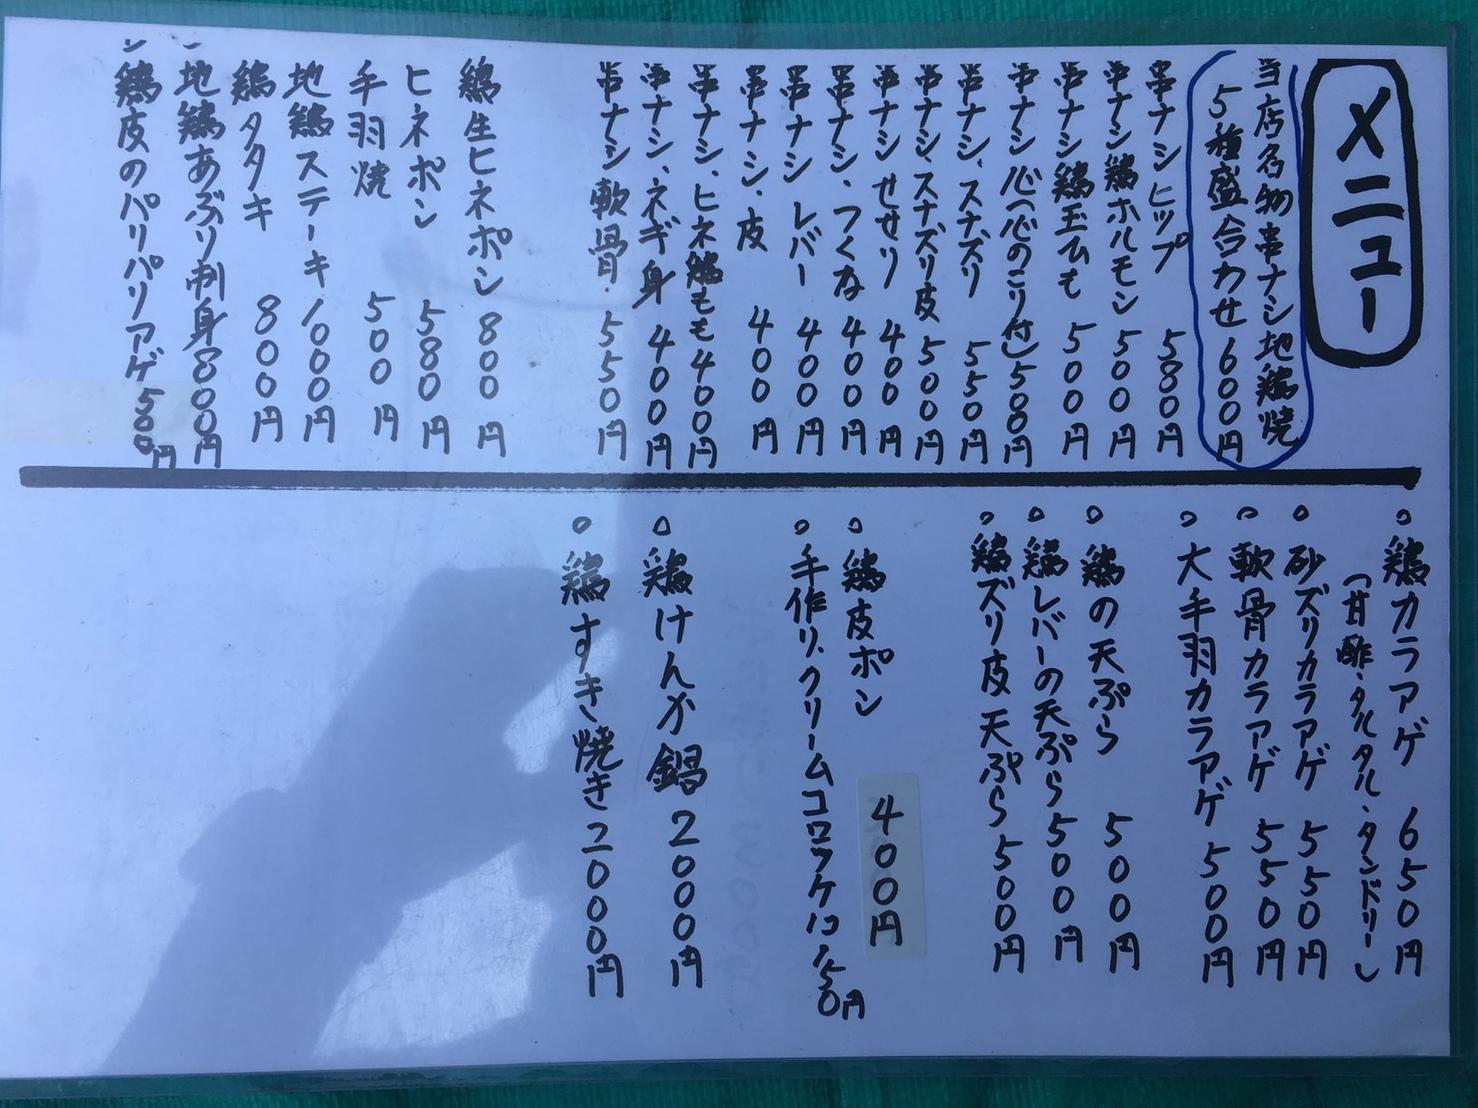 メニュー
当店名物串ナシ地鶏焼
5種盛合わせ 600円
串ナシヒップ 580円
串ナシ鶏ホルモン 500円
串ナシ鶏玉ひも 500円
串ナシ 心(心のこり付) 500円
串ナシ、スナズリ 550円
串ナシ、スナズリ皮 500円
串ナシ せせり 400円
串ナシ、つくね 400円
串ナシ レバー 400円
串ナシ、皮 400円
串ナシ、ヒネ鶏もも 400円
串ナシ、ネギ身 400円
串ナシ 軟骨 550円
鶏生ヒネポン 800円
ヒネポン 580円
手羽焼 500円
地鶏ステーキ 1000円
鶏タタキ 800円
地鶏あぶり刺身 800円
鶏皮のパリパリアゲ 500円
○鶏カラアゲ 650円
(甘酢・タルタル・タンドリー)
○砂ズリカラアゲ 550円
○軟骨カラアゲ 550円
○大手羽カラアゲ 500円
○鶏の天ぷら 500円
○鶏レバーの天ぷら 500円
○鶏ズリ皮天ぷら 500円
○鶏皮ポン 400円
○手作り、クリームコロッケ1コ 150円
○鶏けんか鍋 2000円
○鶏すき焼き 2000円